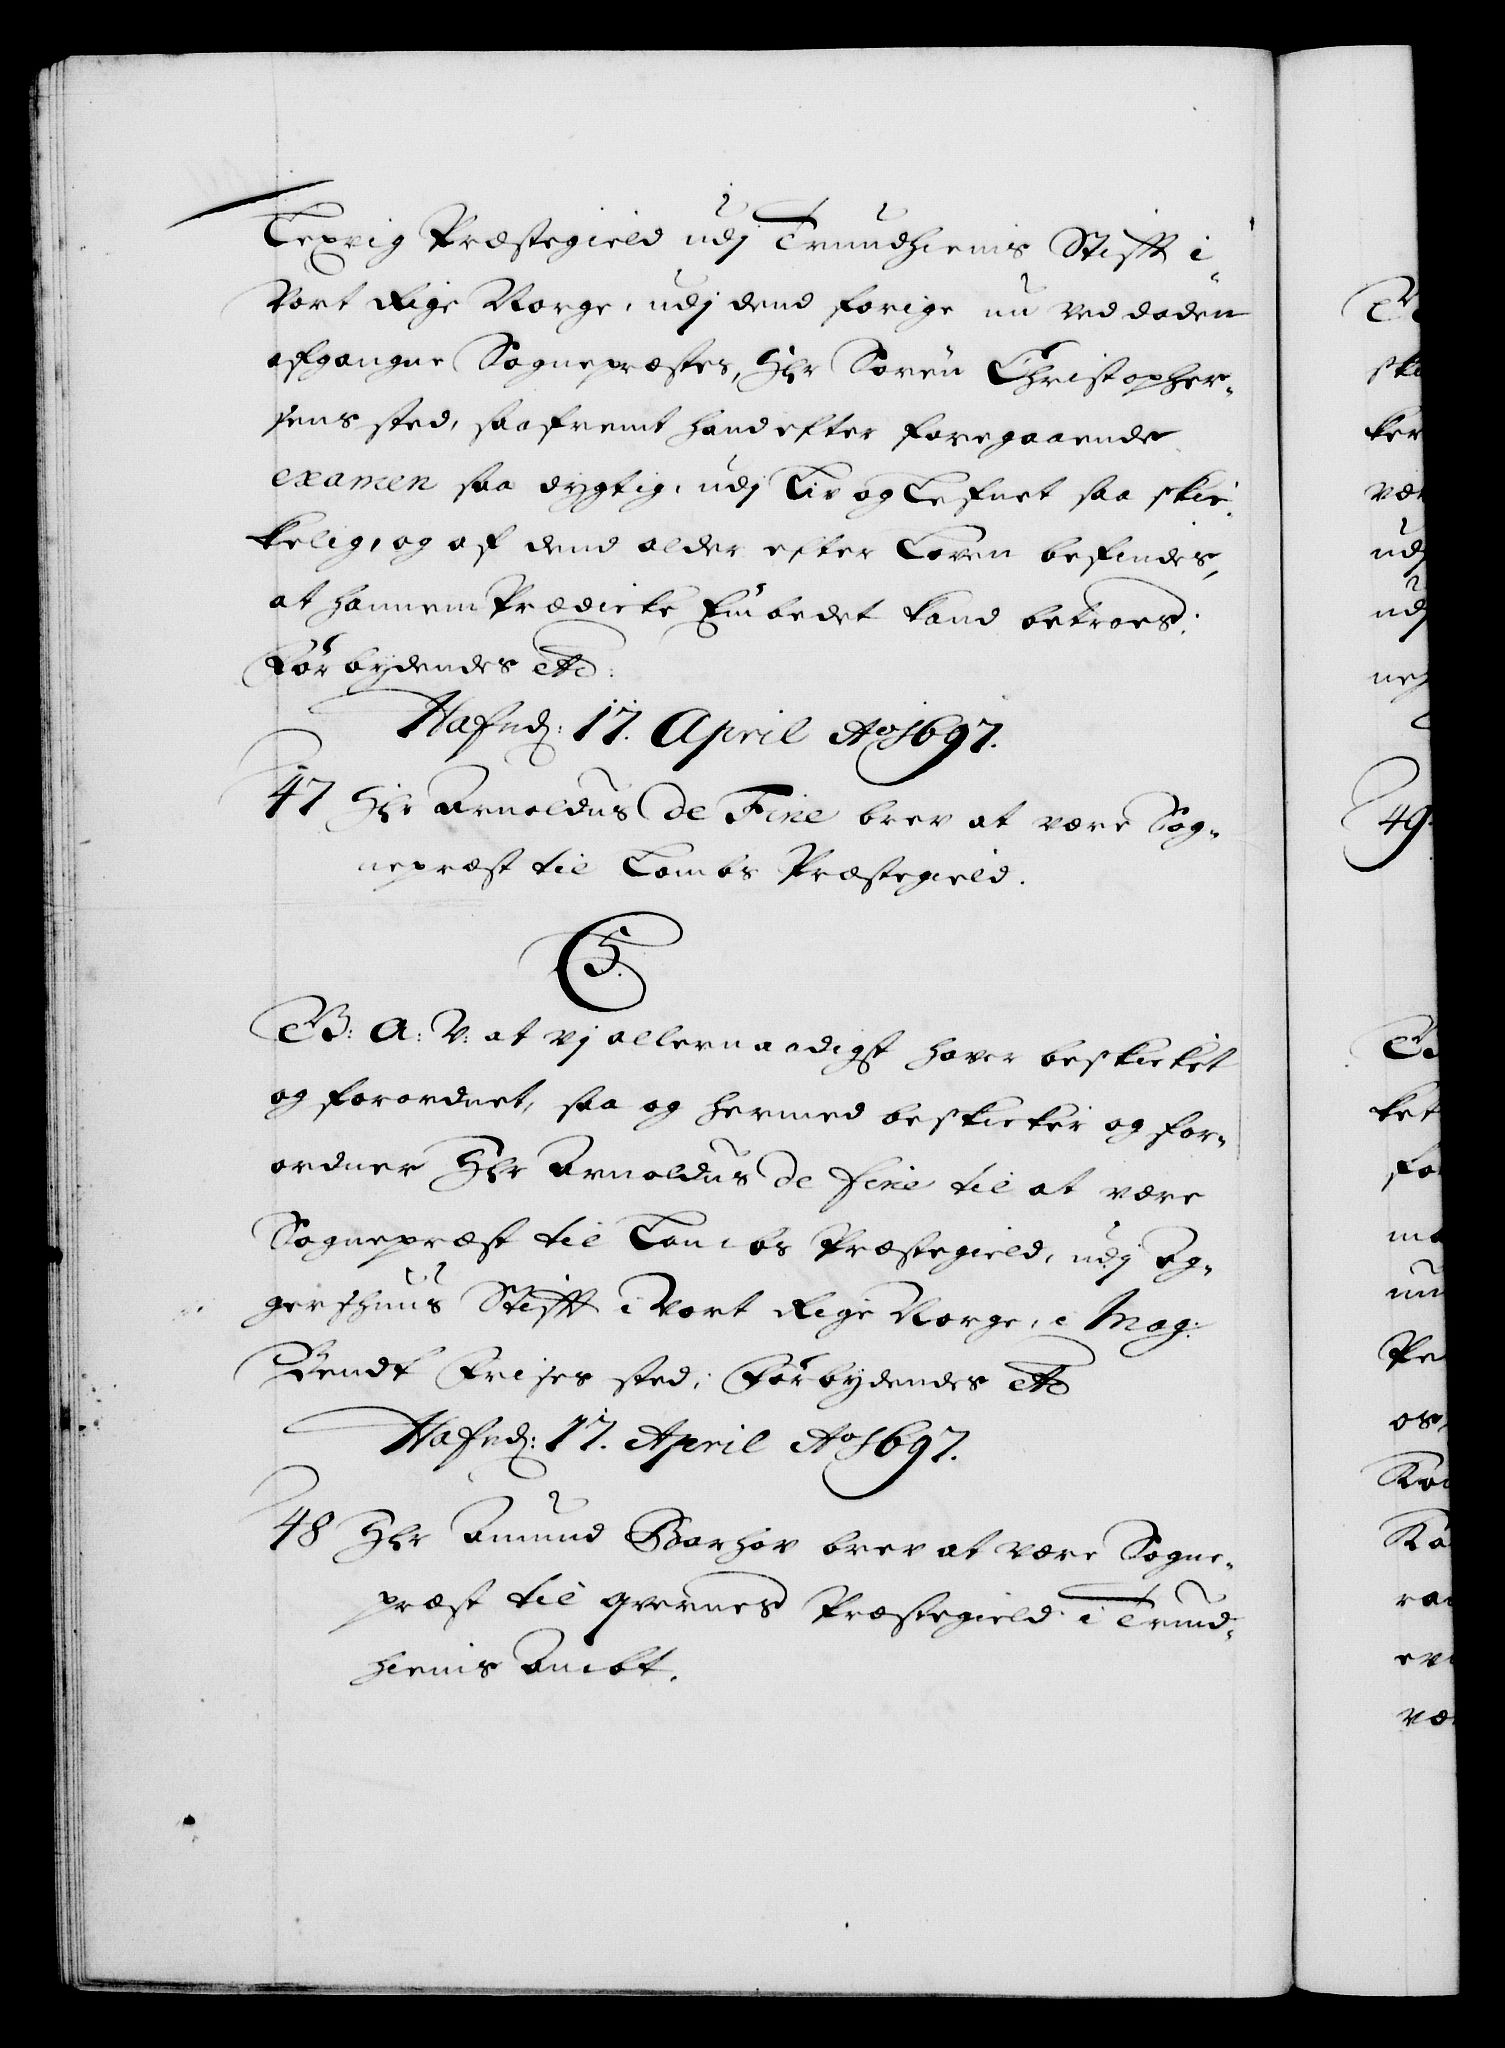 Lexvig Præstegield udj Trundhiems Stifft i
Vort Rige Norge, udj dend forige nu ved døden
afgangne Sognepræstes, Hr Søren Christopher-
sens sted, saafremt hand efter foregaaende
examen saa dygtig, udj Liv og Lefnet saa skic-
kelig, og af dend alder efter Loven befindes,
at hannem Prædicke Embedet kand betroes.
Forbydendes etc:
Hafnæ: 17. April Ao 1697.
47 Hr Arnoldus de Fine brev at være Sog-
nepræst til Lombs Præstegield.
C5.
G: A: V: at vj allernaadigst haver beskicket
og forordnet, saa og hermed beskicker og for-
ordner Hr Arnoldus de fine til at være
Sognepræst til Lombs Præstegield, udj Ag-
gershuus Stifft i Vort Rige Norge, i Mag:
Bendt Frises sted; Forbydendes etc
Hafnæ: 17. April Ao 1697.
48 Hr Amund Barhov brev at være Sogne-
præst til qvernes Præstegield i Trund-
hiems Ambt.
49.